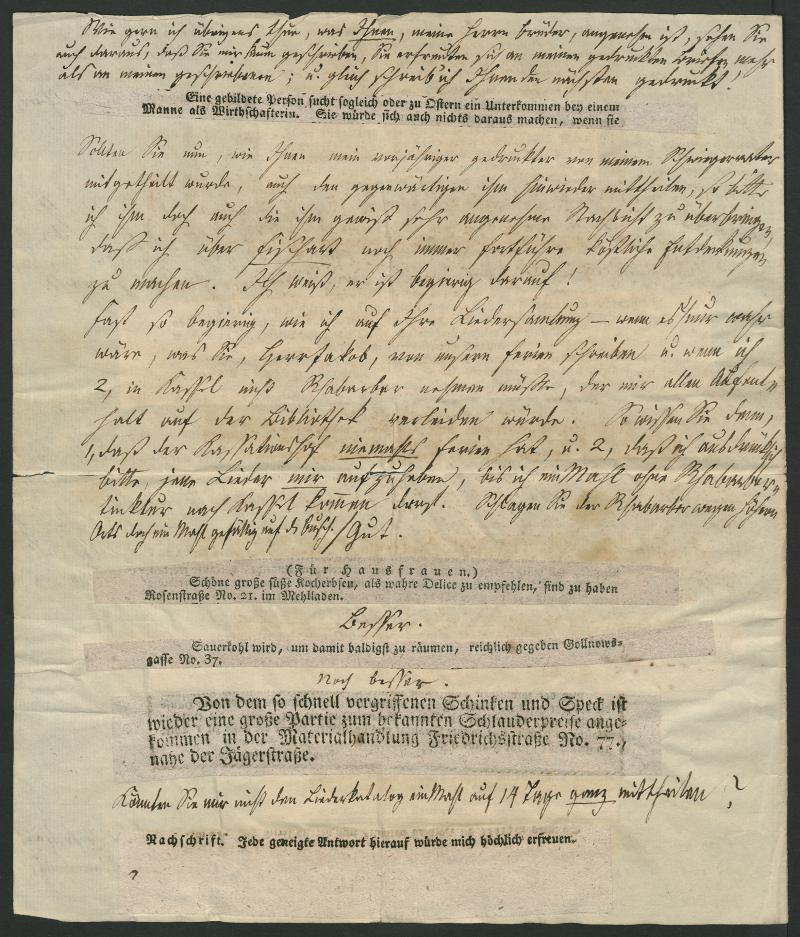 Wie gern ich übrigens thue, was Ihnen, meine Herrn Brüder, angenehm ist, sehen Sie
auch daraus, daß Sie mir kaum geschrieben, Sie erfreuten sich an meinen gedruckten Briefen mehr
als an meinen geschriebenen; u. gleich schreib' ich Ihnen den nächsten gedruckt!
Eine gebildete Person sucht sogleich oder zu Ostern ein Unterkommen bey einem
Manne als Wirthschafterin. Sie würde sich auch nichts daraus machen, wenn sie
Sollten Sie nun, wie Ihnen mein vorjähriger gedruckter von meinem Schwiegervater
mitgetheilt wurde, auch den gegenwärtigen ihm hinwieder mittheilen, so bitte
ich ihm doch auch die ihm gewiß sehr angenehme Nachricht zu überbringen,
daß ich über Fischart noch immer fortführe köstliche Entdeckungen
zu machen. Ich weiß, er ist begierig darauf!
Fast so begierig, wie ich auf Ihre Liedersamlung – wenn es nur wahr
wäre, was Sie, Herr Jakob, von unsern Ferien schreiben u. wenn ich
2, in Kassel nicht Rhabarber nehmen müßte, der mir allen Aufent-
halt auf der Bibliothek verleiden würde. So wissen Sie denn,
1, daß der Kassationshof niemahls Ferien hat, u. 2, daß ich ausdrücklich
bitte, jene Lieder mir aufzuheben, bis ich ein Mahl ohne Rhabarber-
tinktur nach Kassel kommen darf. Schlagen Sie der Rhabarber wegen
Orts doch ein Mahl gefällig auf. Gut.
(Für Hausfrauen.)
Schöne große süße Kocherbsen, als wahre Delice zu empfehlen, sind zu haben
Rosenstraße No. 21. im Mehlladen.
Besser.
Sauerkohl wird, um damit baldigst zu räumen, reichlich gegeben Gollnows-
gasse No. 37.
Noch besser.
Von dem so schnell vergriffenen Schinken und Speck ist
wieder eine große Partie zum bekannten Schlauderpreise ange-
kommen in der Materialhandlung Friedrichsstraße No. 77.,
nahe der Jägerstraße.
Könnten Sie mir nicht den Liederkatalog ein Mahl auf 14 Tage ganz mittheilen?
Nachschrift. Jede geneigte Antwort hierauf würde mich höchlich erfreuen.